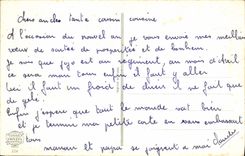 Chers oncles tante cousin cousine
A l'occasion du nouvel an je vous envoie mes meilleurs
vœux de santé de prospérité et de bonheur.
Je sais que au régiment, au mois d'Avril
ce sera mon tour enfin il faut y aller
Ici il fait un froid, de dire il ne fait que
de geler.
Enfin j'espère que tout le monde va bien
et je termine ma petite carte en vous embrassant
tous
maman et papa se joignent à moi